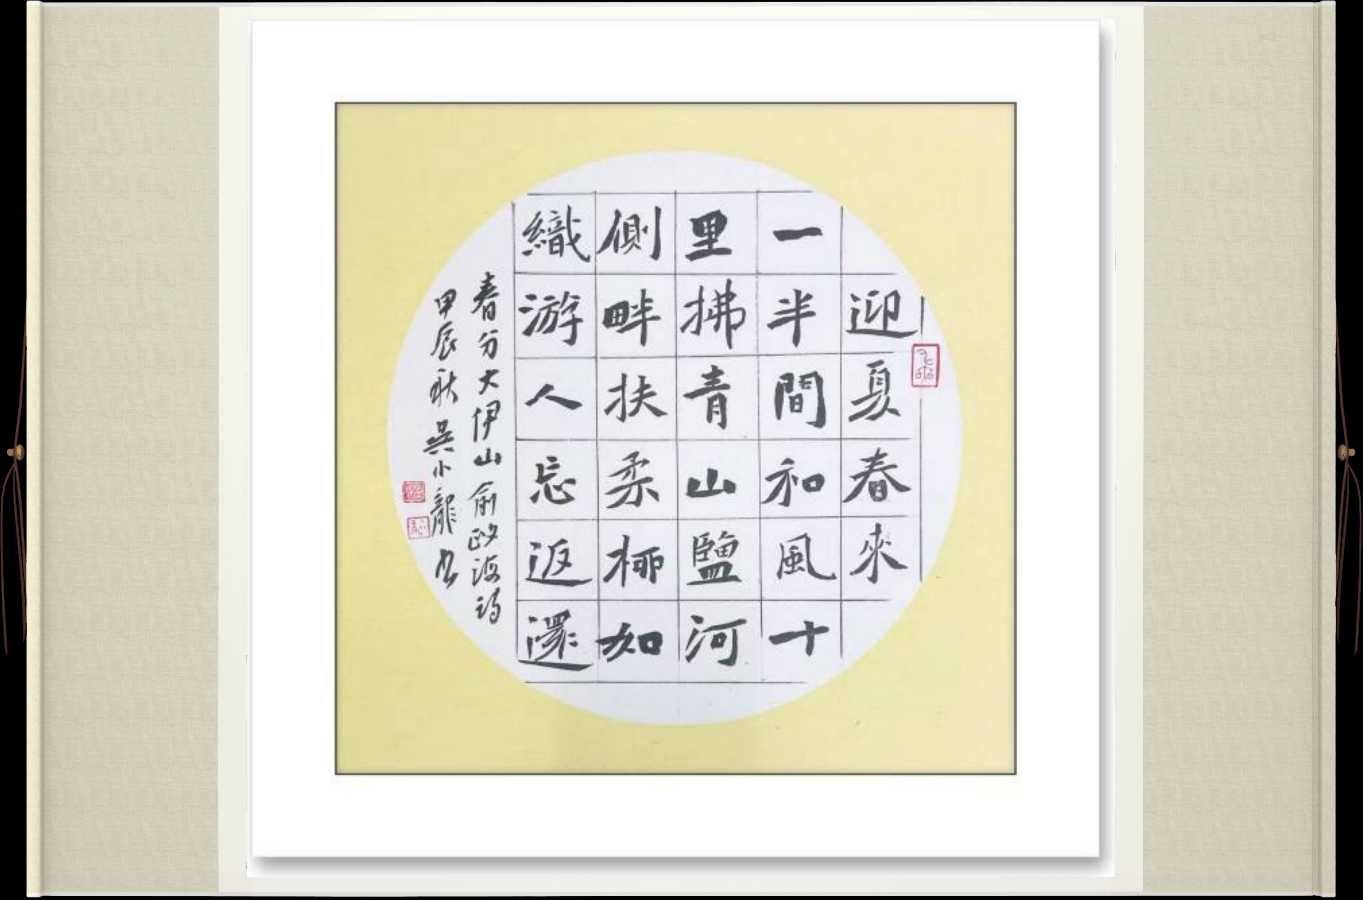 迎夏春來
一半間和風十
里拂青山鹽河
側畔扶柔柳如
織游人忘返還
春分大伊山俞政海詞
甲辰秋吳小龍书